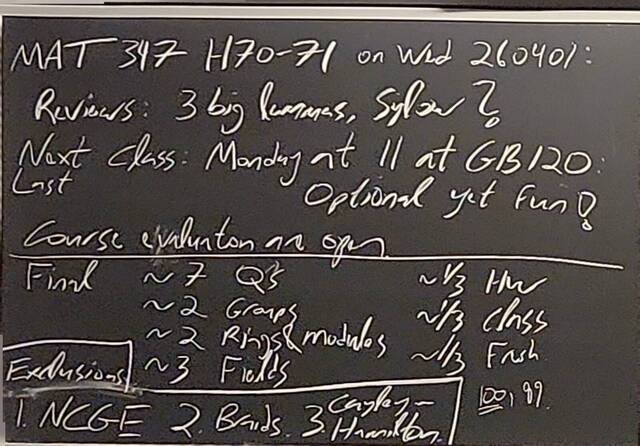 MAT 347 H70-71 on Wed 260401:
Reviews: 3 big lemmas, Sylow?
Next Class: Monday at 11 at GB120:
Last Optional yet Fun!
Course evaluation are open
Final ~7 Q's ~1/3 HW
~2 Groups ~1/3 Class
~2 Rings & modules ~1/3 Fresh
~3 Fields
Exclusions
1. NCGE 2. Braids. 3 Cayley-Hamilton.